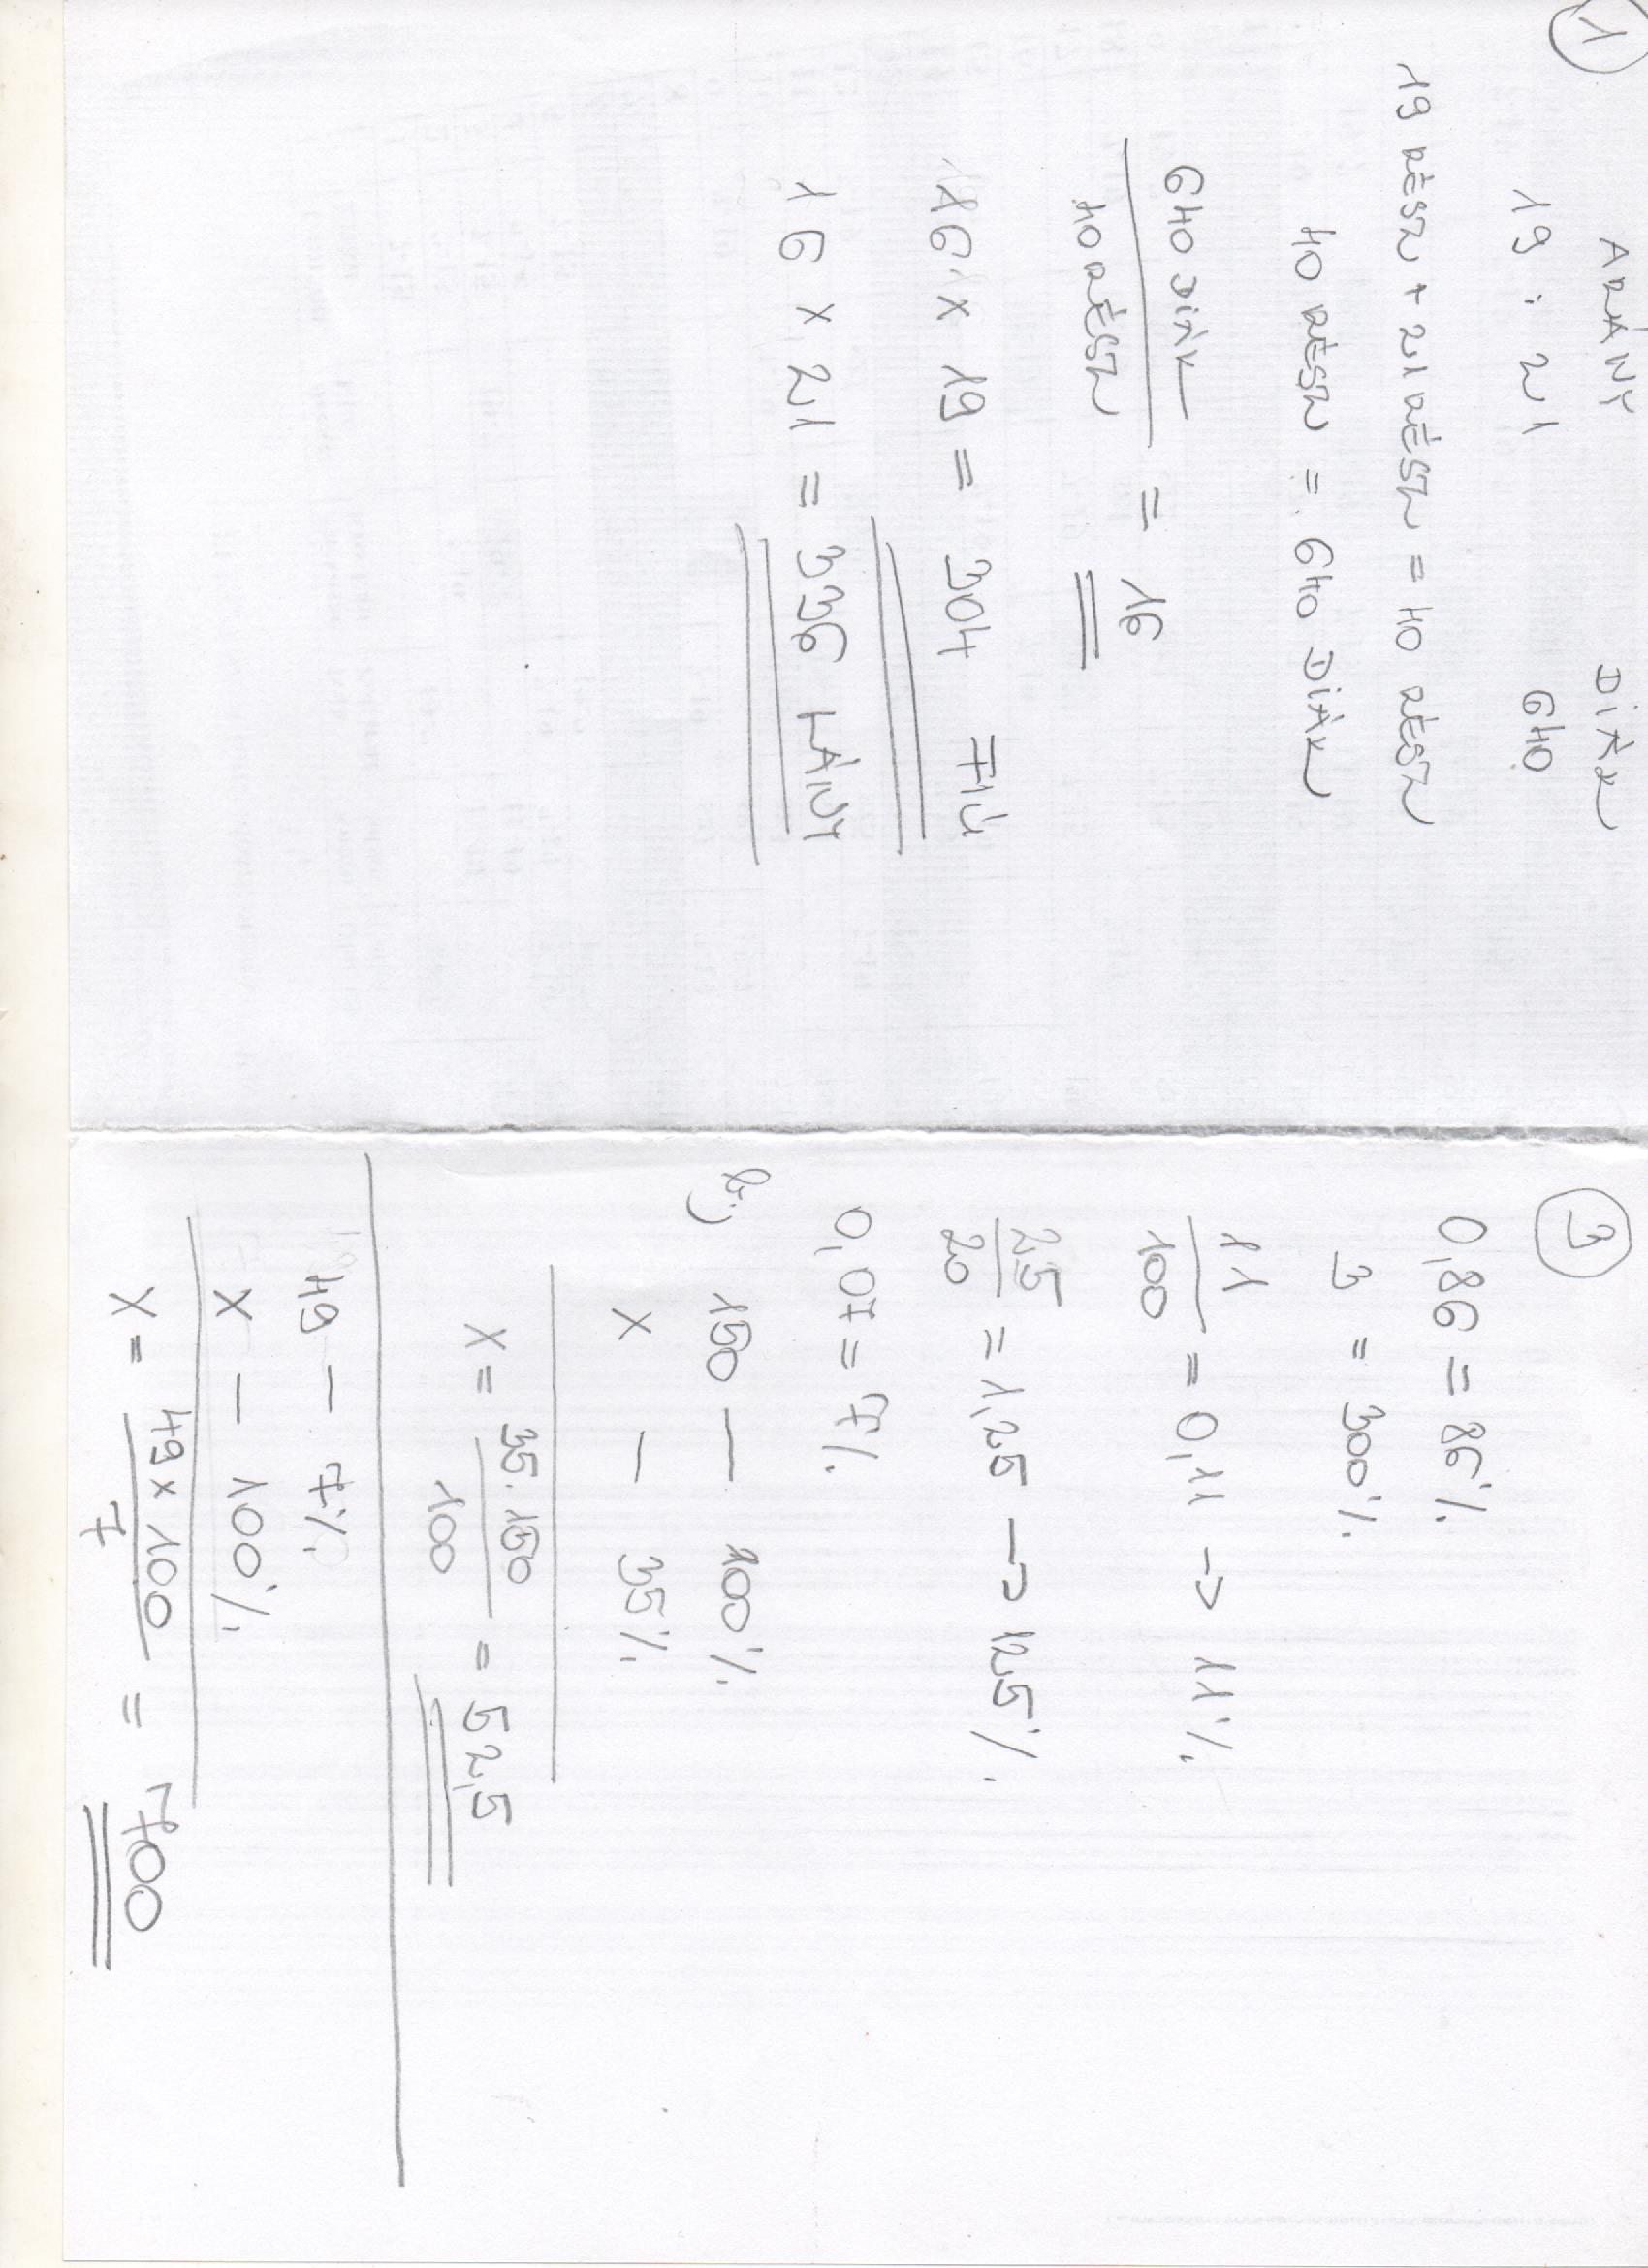 1
ARÁNY DIÁK
19 : 21 640
19 RÉSZ + 21 RÉSZ = 40 RÉSZ
40 RÉSZ = 640 DIÁK
640 DIÁK
40 RÉSZ
= 16
16 x 19 = 304 FIÚ
16 x 21 = 336 LÁNY
3
0,86 = 86%
3 = 300%
11
100
= 0,11 → 11%
25
20
= 1,25 → 125%
0,07 = 7%
b;)
150 — 100%
x — 35%
x = 35.150
100
= 52,5
49 — 7%
x — 100%
x = 49 x 100
7
= 700